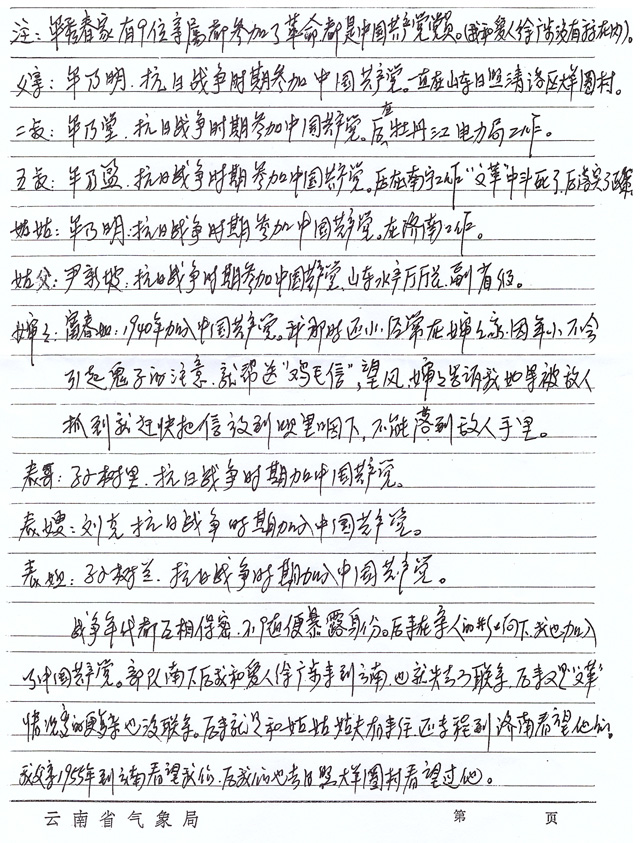 注：牟秀春家有9位亲属都参加了革命都是中国共产党党员。(我和爱人徐广東没有在内)。
父亲：牟乃明．抗日战争时期参加中国共产党。一直在山东日照涛洛区大洋圈村。
二叔：牟乃堂．抗日战争时期参加中国共产党。后在牡丹江电力局工作。
五叔：牟乃盈．抗日战争时期参加中国共产党。后在南宁工作"文革"中斗死了，后落实了政策。
姑姑：牟乃明：抗日战争时期参加中国共产党。在济南工作。
姑父：尹 坡：抗日战争时期参加中国共产党，山东水产厅厅长．副省级。
婶婶：富春如：1940年加入中国共产党。我那时还小，经常在婶婶家，因年小不会
引起鬼子的注意．就帮送"鸡毛信"，望风，婶婶告诉我如果被敌人
抓到就赶快把信放到咀里咽下，不能落到敌人手里。
表哥：孙树 ．抗日战争时期加中国共产党。
表嫂：刘克．抗日战争时期加入中国共产党。
表姐：孙树兰．抗日战争时期加入中国共产党。
战争年代都互相保密．不随便暴露身份。后来在亲人的影响下，我也加入
了中国共产党。部队南下后我和爱人徐广东来到云南，也就失去了联系，后来又是"文革"
情况 的更 也没联系。后来就只和姑姑姑夫有来往，还专程到济南看望他们。
我父亲1955年到云南看望我们．后我们也去日照大洋圈村看望过他。
云南省气象局 第 页